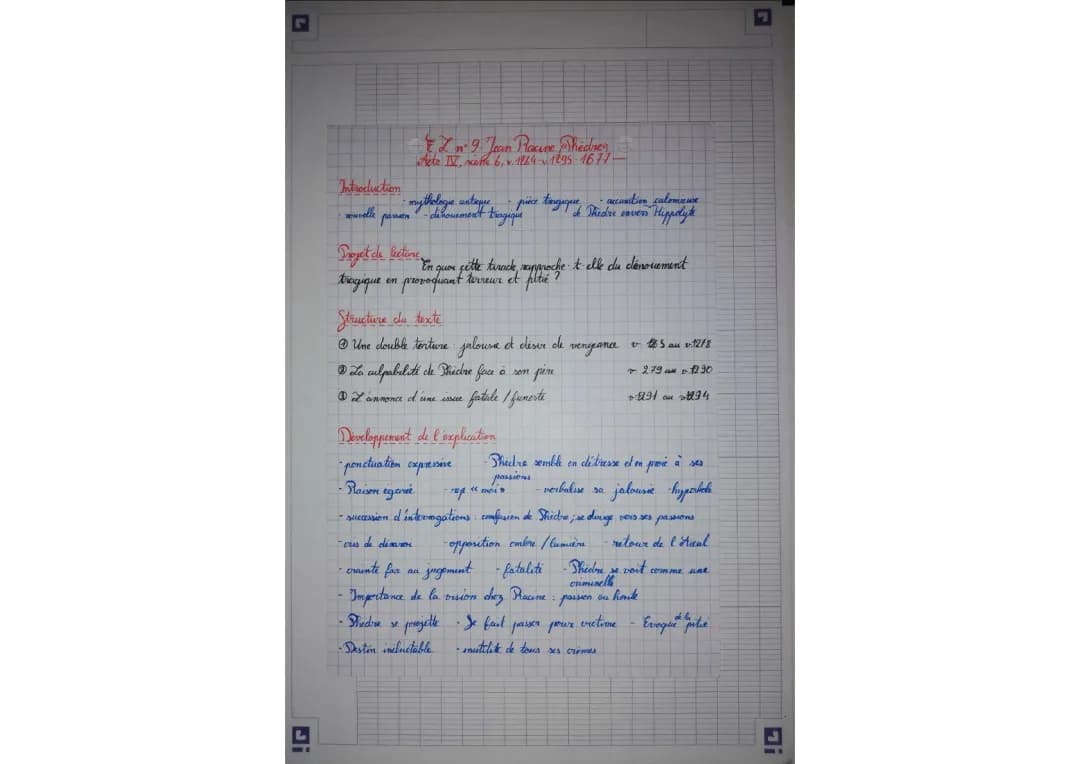 EL n° 9: Jean Racine, Phèdre,
Acte IV, scène 6, v.1264-v.1295 - 1677 -
Introduction
- mythologie antique - pièce tragique - accusation calomnieuse
- nouvelle passion - dénouement tragique de Phèdre envers Hippolyte
Projet de lecture
En quoi cette tirade rapproche-t-elle du dénouement
tragique en provoquant terreur et pitié ?
Structure du texte
① Une double torture : jalousie et désir de vengeance au v.1278
② La culpabilité de Phèdre face à son père v.1290
③ L'annonce d'une issue fatale / funeste v.1291 au v.1294
Développement de l'explication
- ponctuation expressive - Phèdre semble en détresse et en proie à ses
passions
- Raison égarée - rep « moi » - verbalise sa jalousie - hyperbole
- succession d'interrogations : confusion de Phèdre, se dirige vers ses passions
- cris de désarroi - opposition ombre / lumière - retour de l'aïeul
- crainte face au jugement - fatalité - Phèdre se voit comme une
criminelle
- Importance de la vision chez Racine : passion ou honte
- Phèdre se projette - Se fait passer pour victime - Evoque de la pitié
- Destin inéluctable - inutilité de tous ses crimes